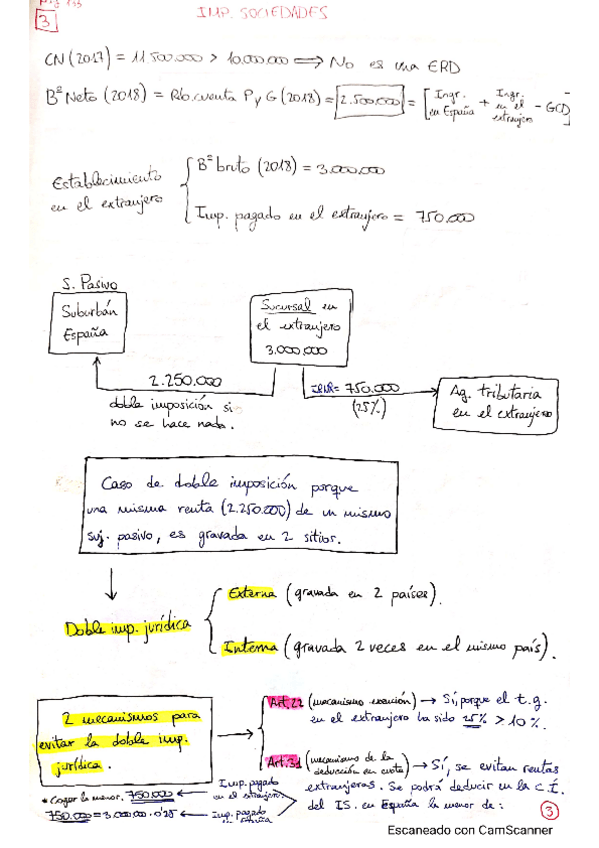 Pág 133
3
IMP. SOCIEDADES
CN (2017) = 11 500.000 > 10.000.000 ⟹ No es una ERD
Bº Neto (2018) = Rdo. cuenta P y G (2018) = 2.500.000 = [Ingr. en España + Ingr. en el extranjero - GD]
Establecimiento en el extranjero
Bº bruto (2018) = 3.000.000
Imp. pagado en el extranjero = 750.000
S. Pasivo
Suburbán
España
Sucursal en
el extranjero
3.000.000
2.250.000
doble imposición si
no se hace nada.
IRNR = 750.000
(25%)
Ag. tributaria
en el extranjero
Caso de doble imposición porque
una misma renta (2.250.000) de un mismo
suj. pasivo, es gravada en 2 sitios.
Doble imp. jurídica
Externa (gravada en 2 países).
Interna (gravada 2 veces en el mismo país).
2 mecanismos para
evitar la doble imp.
jurídica.
Art. 22 (mecanismo exención) → Sí, porque el t.g.
en el extranjero ha sido 25% > 10%.
Art. 31 (mecanismo de la deducción en cuota) → Sí, se evitan rentas
extranjeras. Se podrá deducir en la C.I.
del IS. en España la menor de:
* Coger la menor. 750.000 ← Imp. pagado en el extranjero
750.000 = 3.000.000 · 0'25 ← Imp. pagado España
3
Escaneado con CamScanner